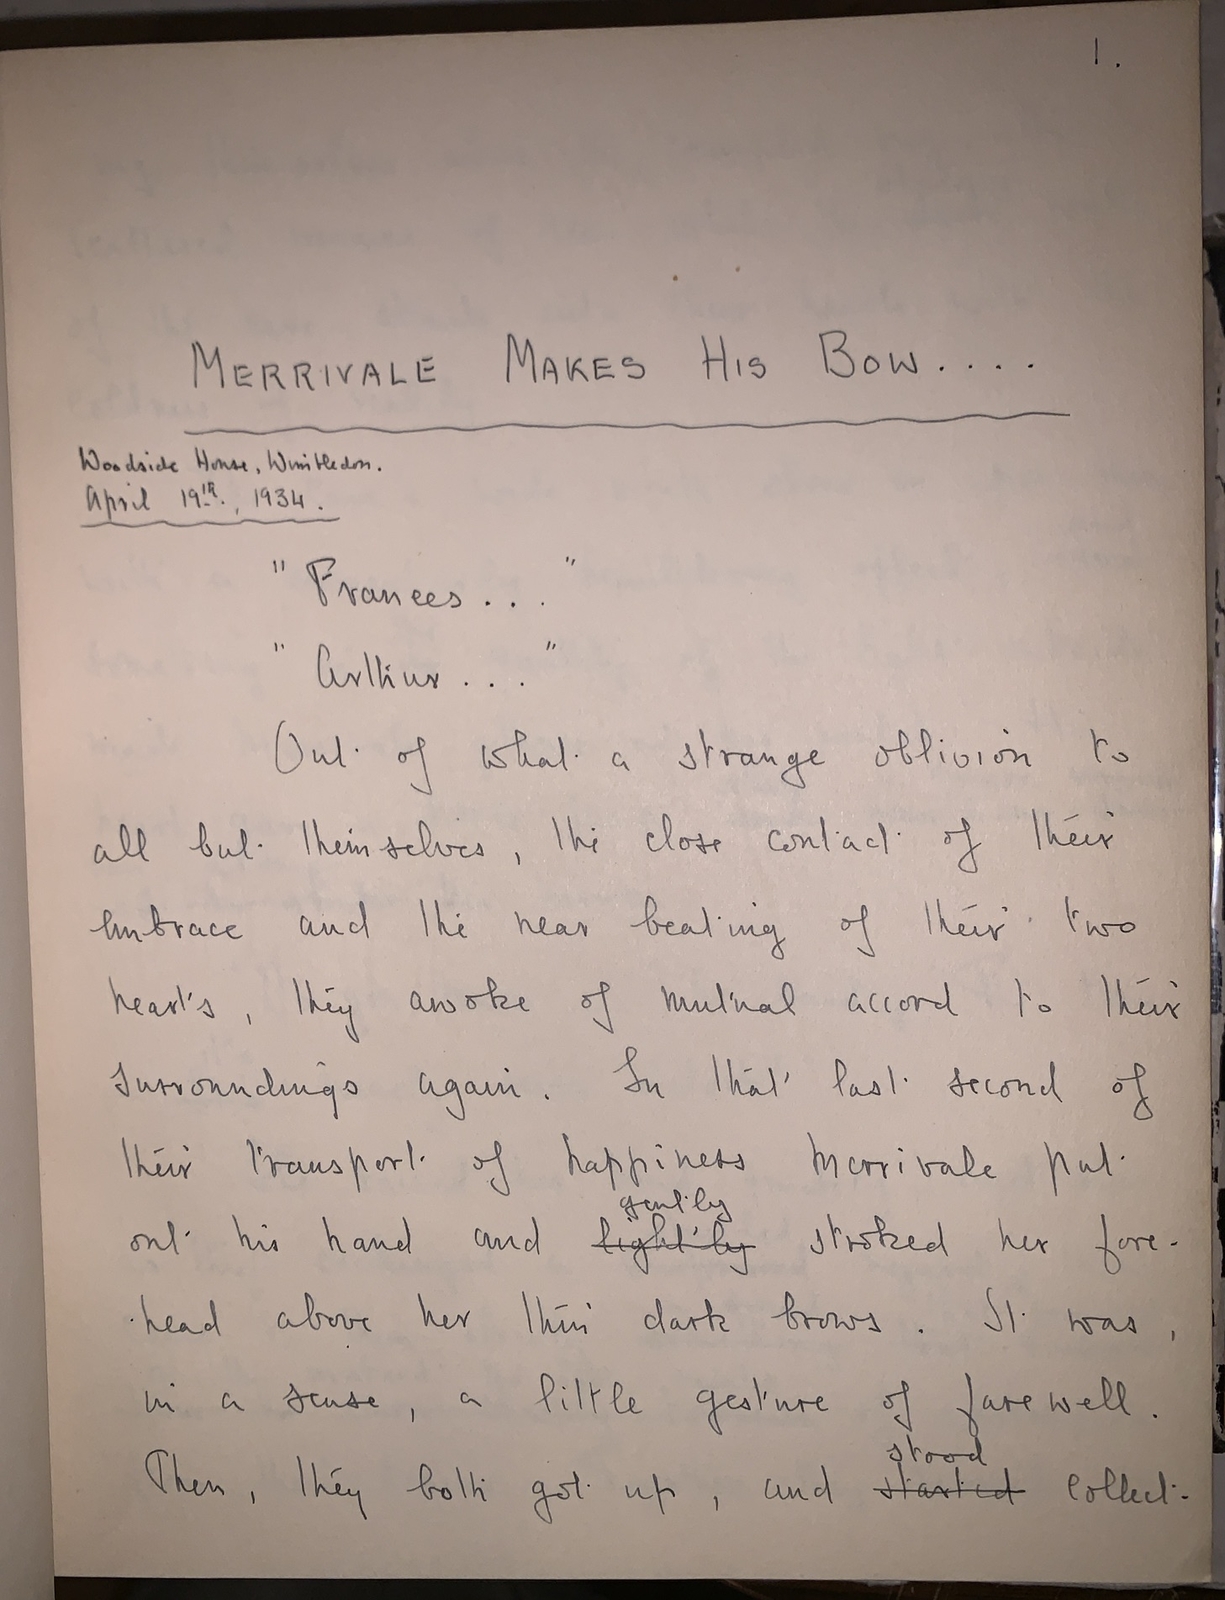 1.
MERRIVALE MAKES HIS BOW.....
Woodside House, Wimbledon.
April 19th, 1934.
"Frances..."
"Arthur..."
Out of what a strange oblivion to
all but themselves, the close contact of their
embrace and the near beating of their two
hearts, they awoke of mutual accord to their
surroundings again. In that last second of
their transport of happiness Merrivale put
gently
out his hand and lightly stroked her fore-
head above her thin dark brows. It was,
in a sense, a little gesture of farewell.
stood
Then, they both got up, and started collect-